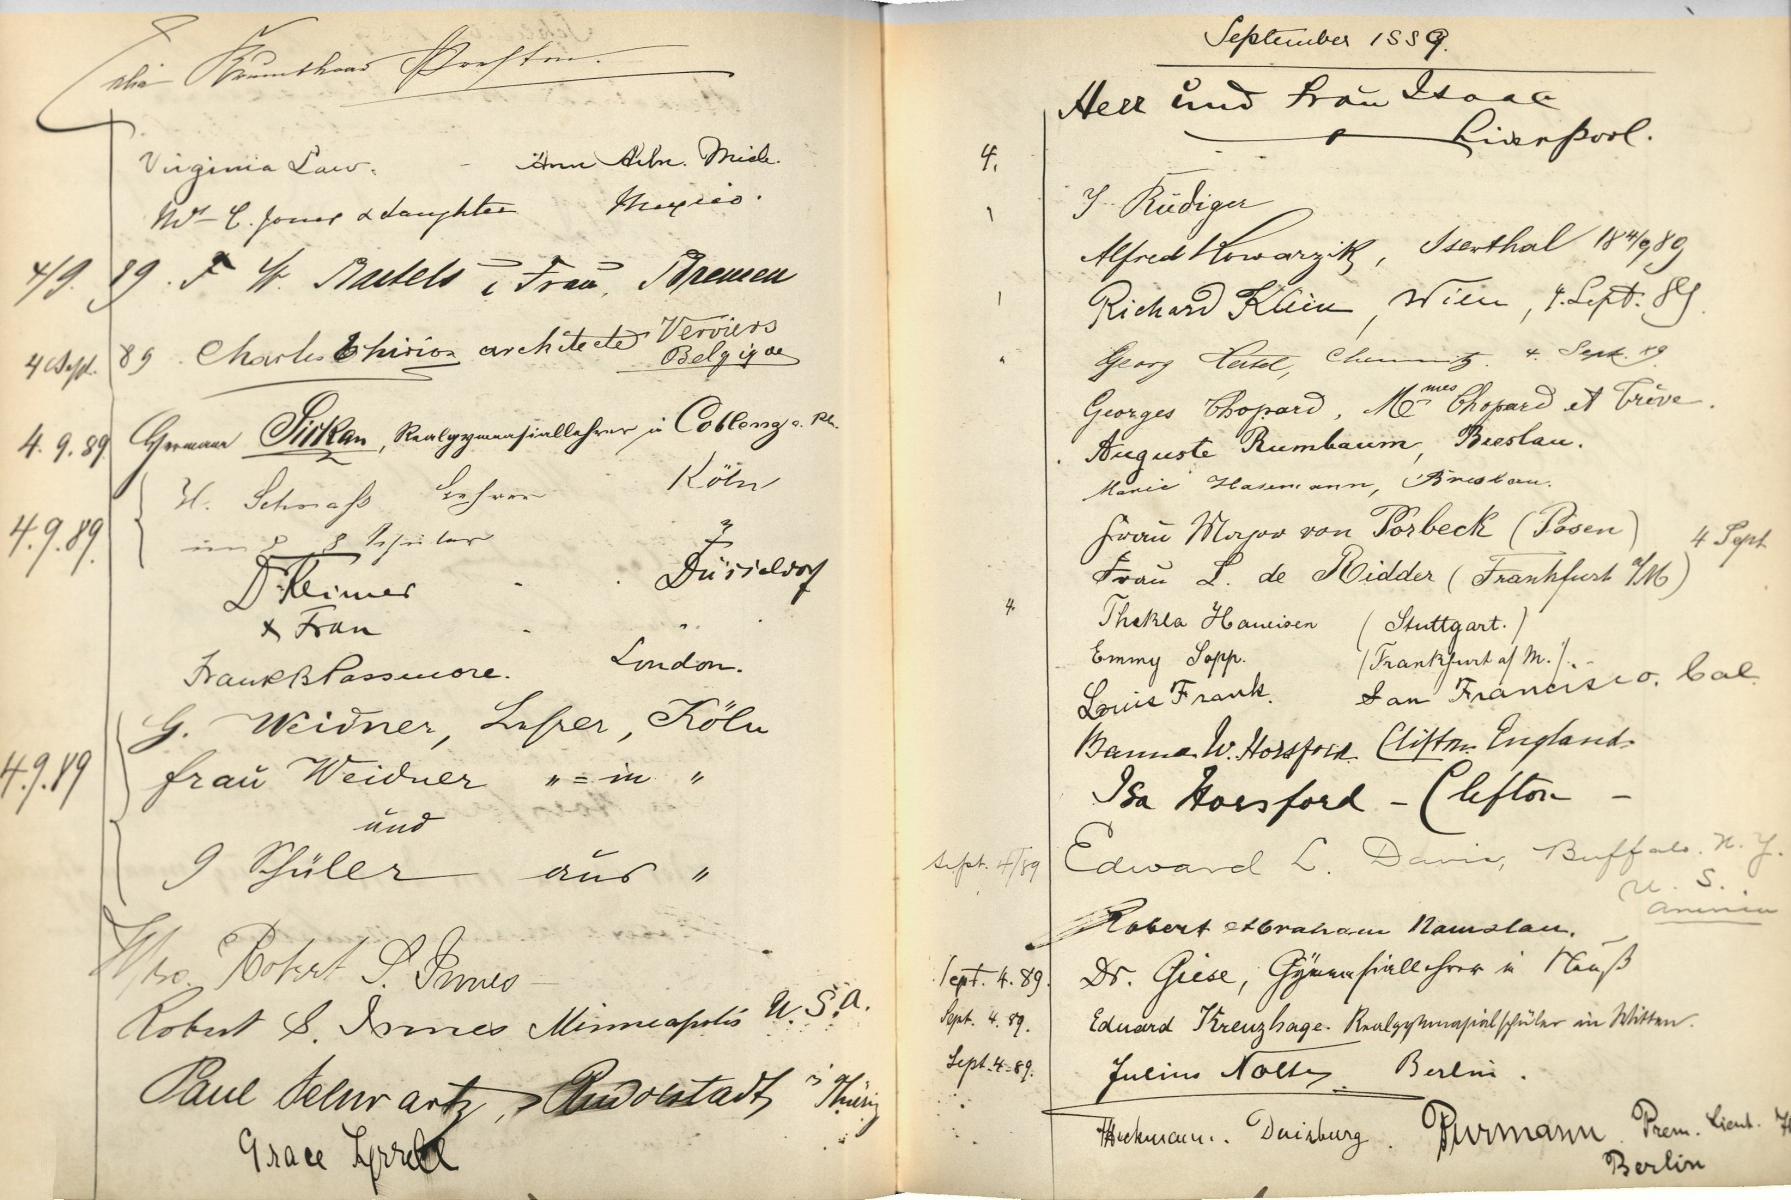 Virginia Law. - Ann Arbr. Mich.
Mrs C. Jones & daughter Mexico.
4/9. 89. F. W. Bartels u. Frau, Bremen
4 Sept. 89 Charles Thirion architecte Verviers
Belgique
4. 9. 89 Germann Sirkan, Realgymnasiallehrer in Coblenz a. Rh.
4.9.89. H. Schnaß Lehrer Köln
8 Schüler
Dr Reimer Düsseldorf
& Frau
Frank B Passmore. London.
4.9.89 G. Weidner, Lehrer, Köln
Frau Weidner " = in "
und
9 Schüler aus "
Mrs. Robert S. Innes
Robert S. Innes Minneapolis U.S.A.
Paul Schwartz, Rudolstadt i/Thüring
Grace Tyrrell
September 1889.
Herr und Frau Isaac
Liverpool.
4.
J. Rüdiger
Alfred Kowarzik, Iserthal 18 4/9 89
Richard Klein, Wien, 4. Sept. 89.
Georg Chemnitz. 4. Sept. 89.
Georges Chopard, Mmes Chopard et Trêve.
Auguste Rumbaum, Breslau.
Marie Hasemann, Breslau.
Frau Major von Porbeck (Posen) 4 Sept
Frau L. de Ridder (Frankfurt a/M)
4. Thekla Haueisen (Stuttgart.)
Emmy Sopp. (Frankfurt a/M.)
Louis Frank. San Francisco. Cal.
W. Horsford. Clifton England.
Isa Horsford - Clifton -
Sept. 4/89 Edward L. Davis, Buffalo. N.Y.
U. S.
America
Robert Abraham Namslau.
Sept. 4. 89. Dr. Giese, Gymnasiallehrer in Neuß
Sept. 4. 89. Eduard Kreuzhage. Realgymnasialschüler in Witten.
Sept. 4. 89. Julius Nolte Berlin.
Heckmann. Duisburg. Purmann Prem. Lieut.
Berlin